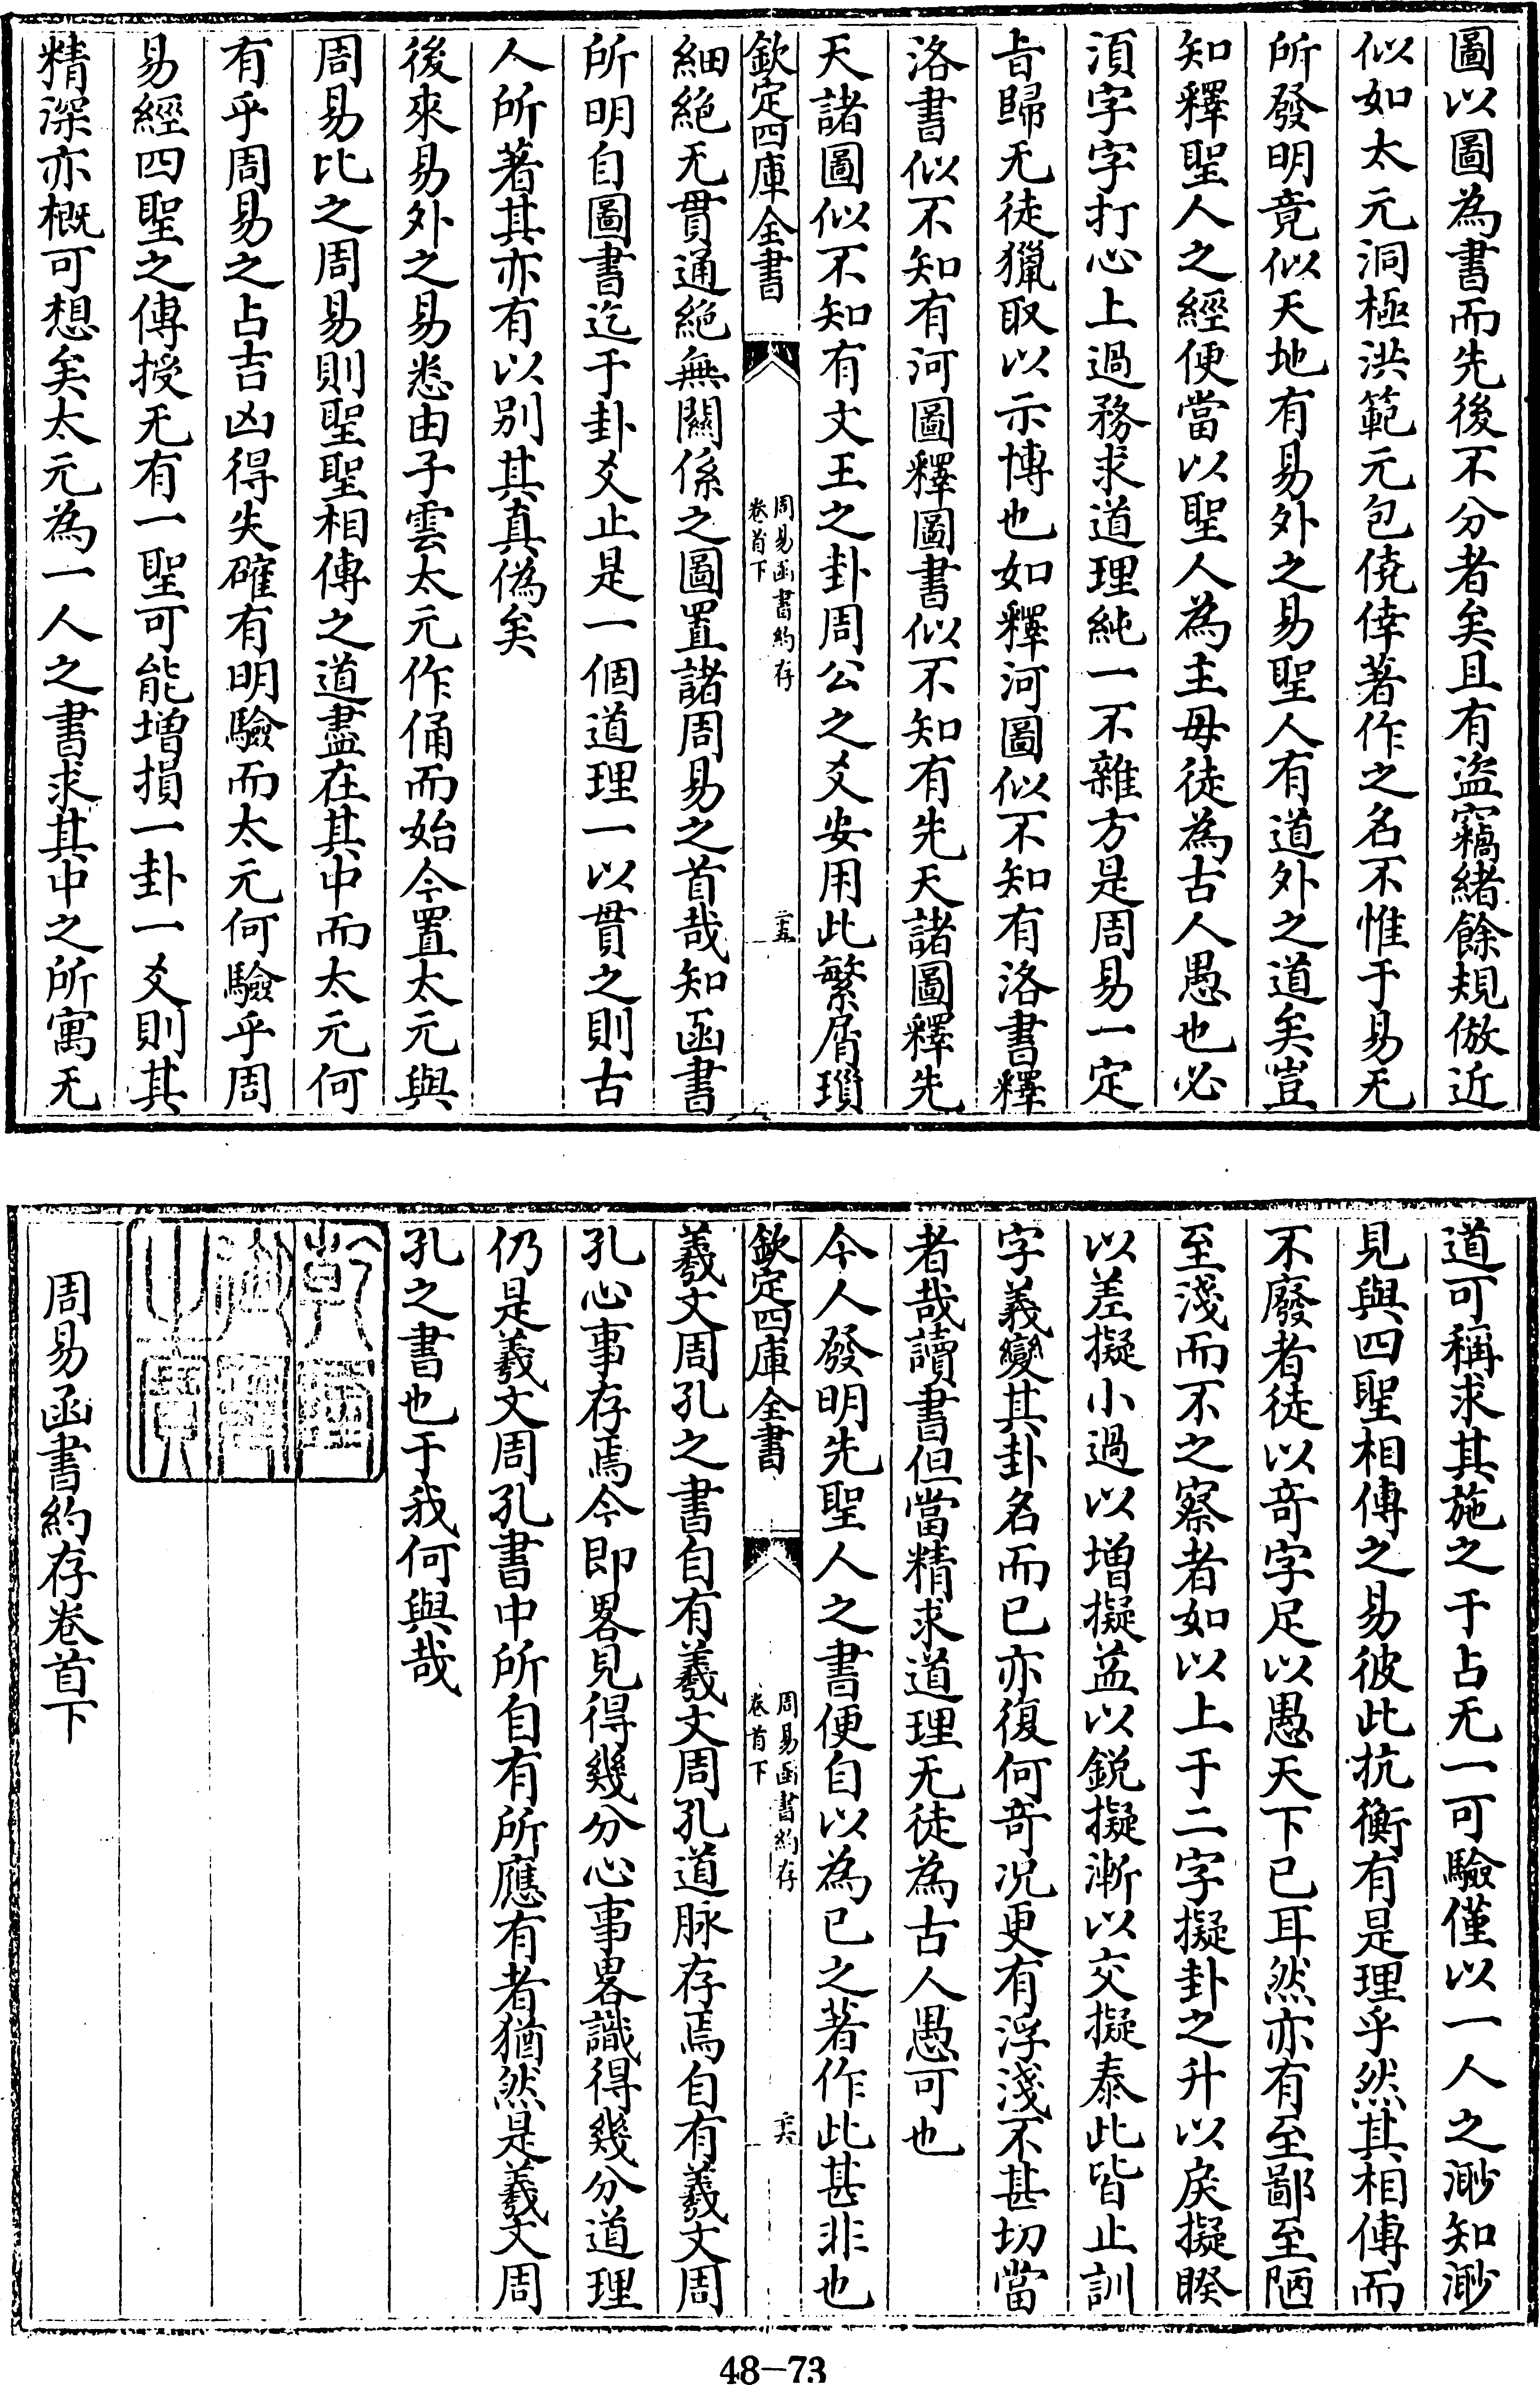 圖以圖為書而先後不分者矣且有盜竊緒餘規倣近
似如太元洞極洪範元包僥倖著作之名不惟于易无
所發明竟似天地有易外之易聖人有道外之道矣豈
知釋聖人之經便當以聖人為主毋徒為古人愚也必
湏字字打心上過務求道理純一不雜方是周易一定
㫖歸无徒獵取以示博也如釋河圖似不知有洛書釋
洛書似不知有河圖釋圖書似不知有先天諸圖釋先
天諸圖似不知有文王之卦周公之爻安用此繁屑瑣
欽定四庫全書
周易函書約存
卷首下
二十五
細絶无貫通絶無關係之圖置諸周易之首哉知函書
所明自圖書迄于卦爻止是一個道理一以貫之則古
人所著其亦有以别其真偽矣
後來易外之易悉由子雲太元作俑而始今置太元與
周易比之周易則聖聖相傳之道盡在其中而太元何
有乎周易之占吉凶得失確有明驗而太元何驗乎周
易經四聖之傳授无有一聖可能增損一卦一爻則其
精深亦概可想矣太元為一人之書求其中之所寓无
道可稱求其施之于占无一可驗僅以一人之渺知渺
見與四聖相傳之易彼此抗衡有是理乎然其相傳而
不廢者徒以奇字足以愚天下已耳然亦有至鄙至陋
至淺而不之察者如以上于二字擬卦之升以戾擬睽
以差擬小過以增擬益以銳擬漸以交擬泰此皆止訓
字義變其卦名而已亦復何奇况更有浮淺不甚切當
者哉讀書但當精求道理无徒為古人愚可也
今人發明先聖人之書便自以為已之著作此甚非也
欽定四庫全書
周易函書約存
卷首下
二十六
羲文周孔之書自有羲文周孔道脉存焉自有羲文周
孔心事存焉今即畧見得幾分心事畧識得幾分道理
仍是羲文周孔書中所自有所應有者猶然是羲文周
孔之書也于我何與哉
周易函書約存卷首下
48-73